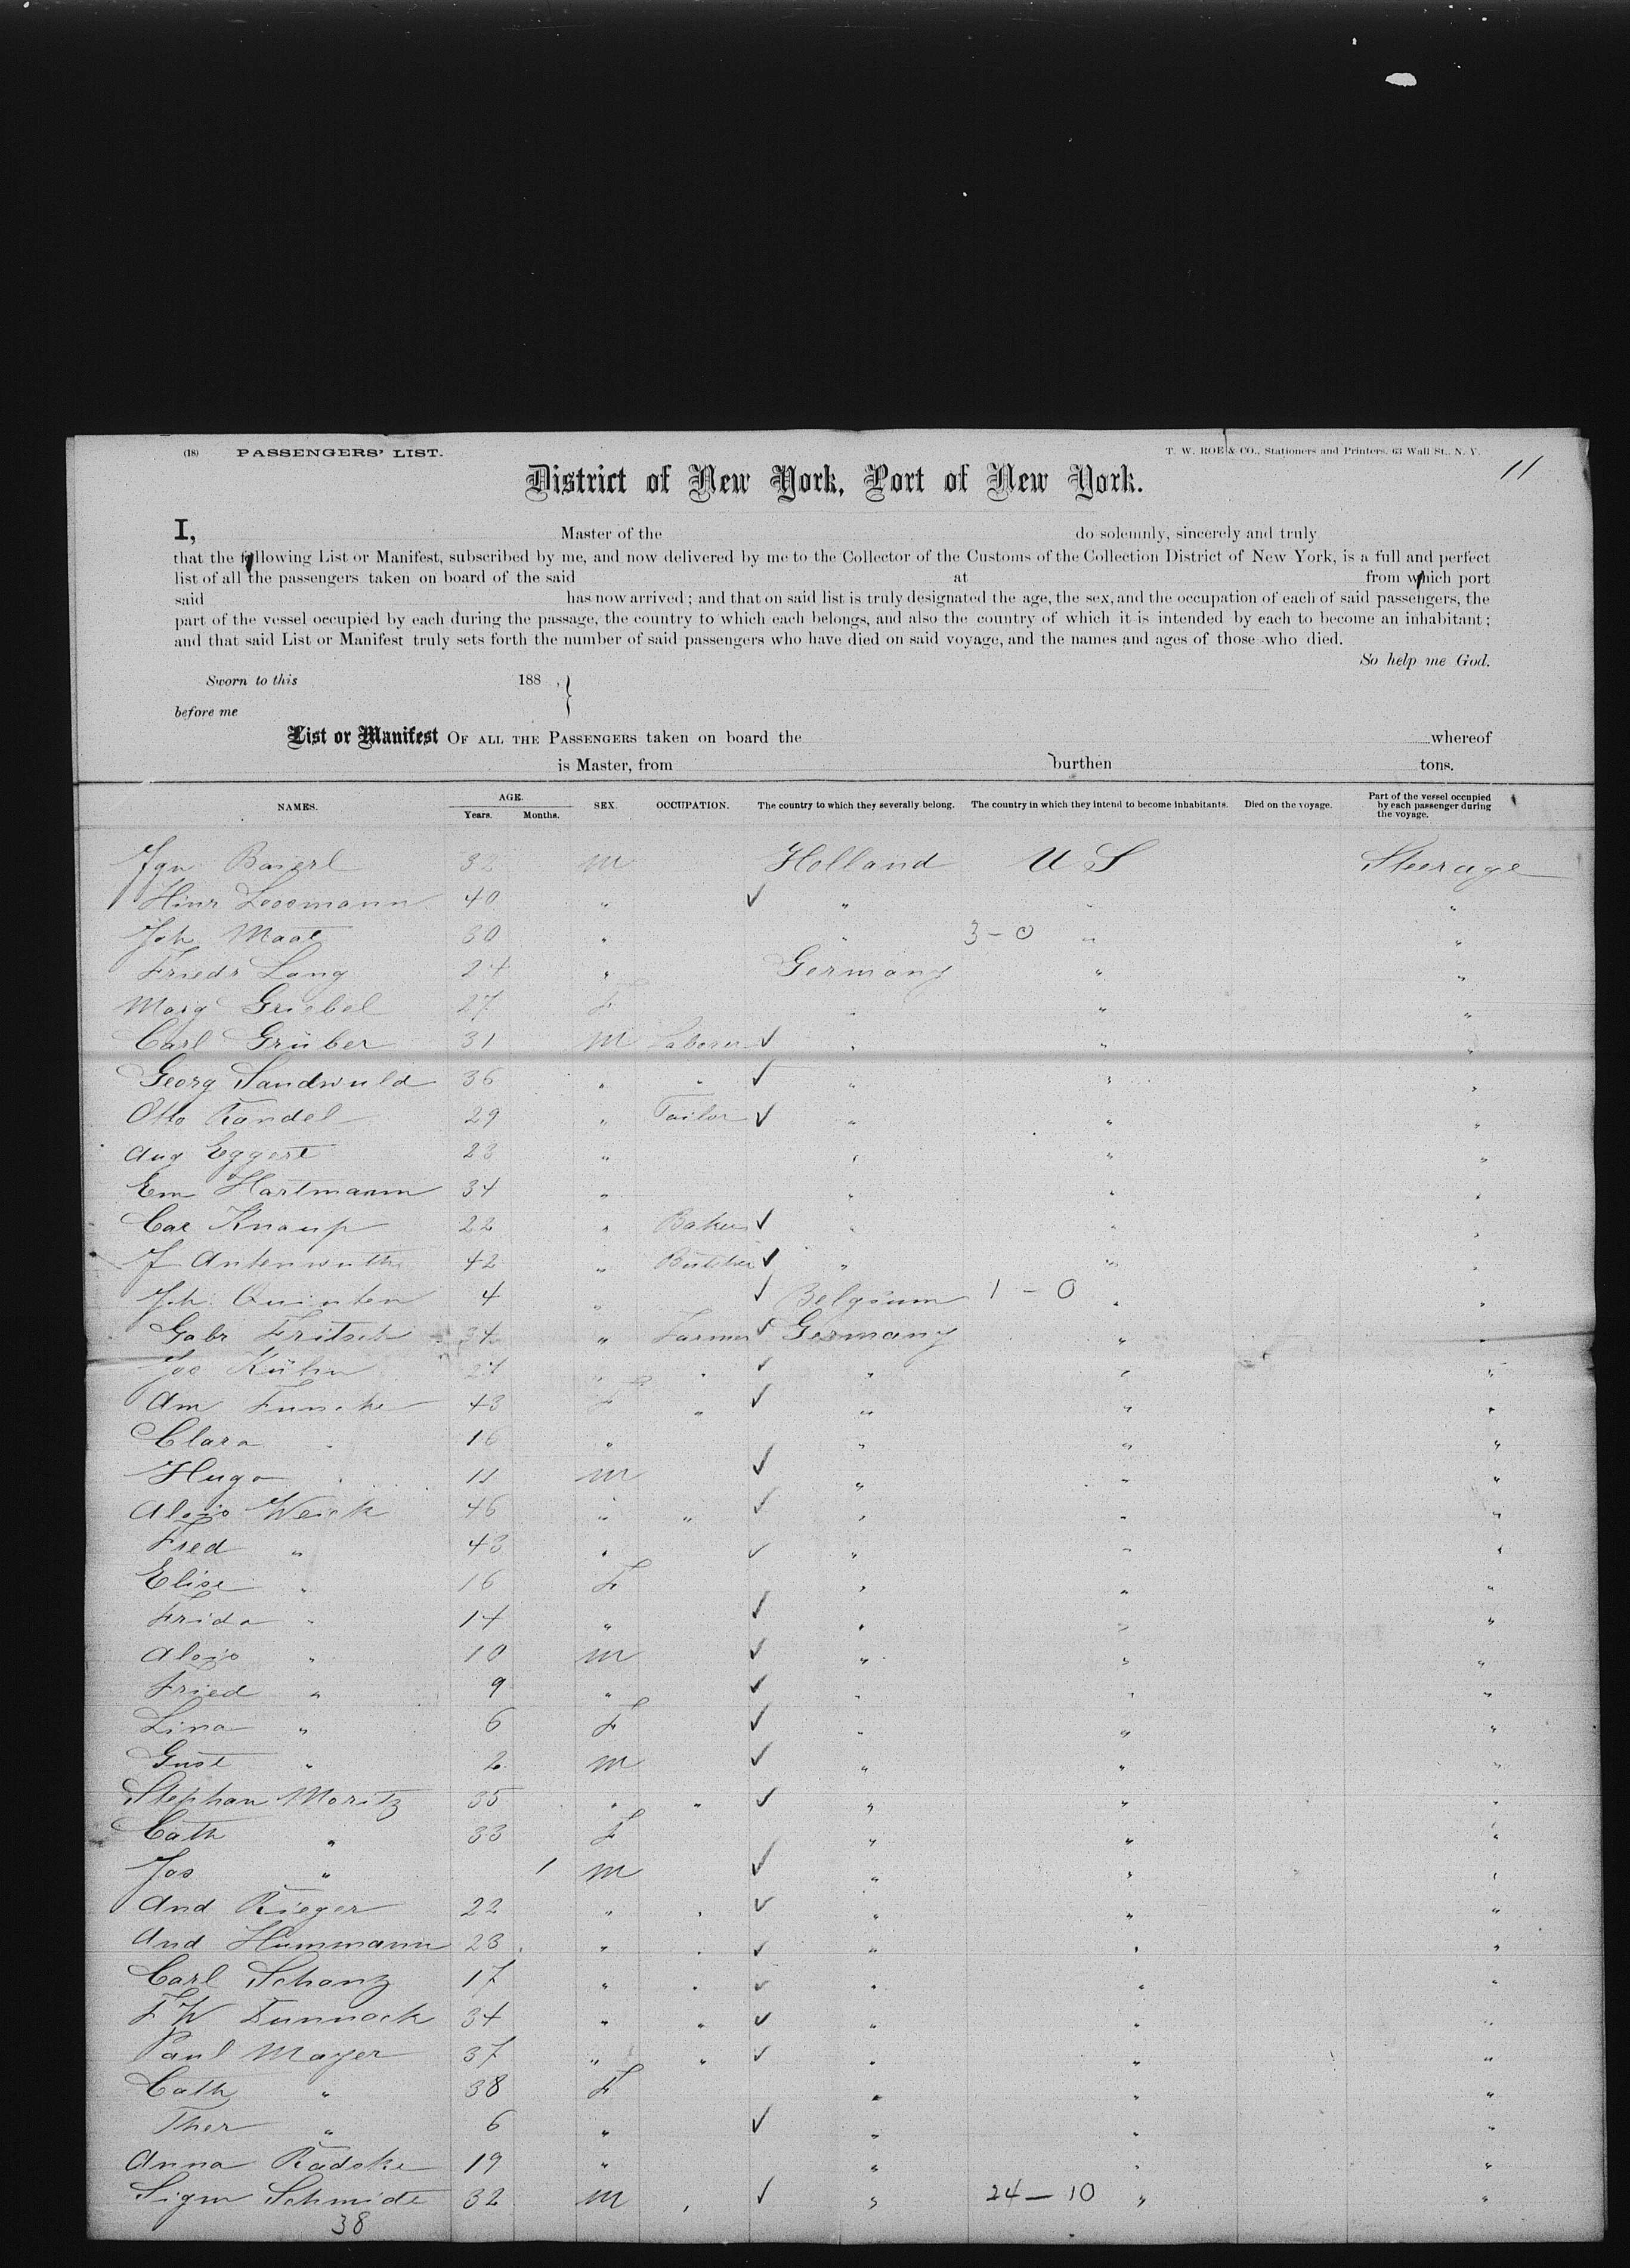 (18) PASSENGERS' LIST. T. W. ROE & CO., Stationers and Printers, 63 Wall St., N. Y.
11
District of New York, Port of New York.
I, Master of the do solemnly, sincerely and truly
that the following List or Manifest, subscribed by me, and now delivered by me to the Collector of the Customs of the Collection District of New York, is a full and perfect
list of all the passengers taken on board of the said at from which port
said has now arrived; and that on said list is truly designated the age, the sex, and the occupation of each of said passengers, the
part of the vessel occupied by each during the passage, the country to which each belongs, and also the country of which it is intended by each to become an inhabitant;
and that said List or Manifest truly sets forth the number of said passengers who have died on said voyage, and the names and ages of those who died.
So help me God.
Sworn to this 188 , }
before me
List or Manifest OF ALL THE PASSENGERS taken on board the whereof
is Master, from burthen tons.
NAMES. AGE. Years. Months. SEX. OCCUPATION. The country to which they severally belong. The country in which they intend to become inhabitants. Died on the voyage. Part of the vessel occupied by each passenger during the voyage.
Ign Baierl 32 m Holland U S Steerage
Hinr 40 " ✓ " " "
Joh Maat 30 " " 3-0 " "
Friedr Lang 24 " Germany " "
Marg Griebel 27 F " " "
Carl Grüber 31 m Laborer ✓ " " "
Georg Sandwuld 36 " " ✓ " " "
Otto Randel 29 " Tailor ✓ " " "
Aug Eggert 23 " " " "
Em Hartmann 34 " " " "
Car Knaup 22 " Baker ✓ " " "
J 42 " Butcher ✓ " " "
Joh Quinten 4 " ✓ Belgium 1-0 " "
Gabr Fritsch 34 " Farmer ✓ Germany " "
Jos Kühn 27 " " ✓ " " "
Am Funcke 43 F " ✓ " " "
Clara " 16 " " " "
Hugo " 11 m ✓ " " "
Alois Weick 46 " " ✓ " " "
Fred " 43 " ✓ " " "
Elise " 16 F " " "
Frida " 14 " ✓ " " "
Alois " 10 m ✓ " " "
Fried " 9 " ✓ " " "
Lina " 6 F ✓ " " "
Gust " 2 m ✓ " " "
Stephan Moritz 35 " " ✓ " " "
Cath " 33 F " " "
Jos " 1 m ✓ " " "
And Rieger 22 " " ✓ " " "
And Hummann 23 " " ✓ " " "
Carl Schanz 17 " " ✓ " " "
F W 34 " " ✓ " " "
Paul Mayer 37 " " ✓ " " "
Cath " 38 F " " "
Ther " 6 " ✓ " " "
Anna Radske 19 " " " "
Sigm Schmidt 32 m " ✓ " 24-10 " "
38